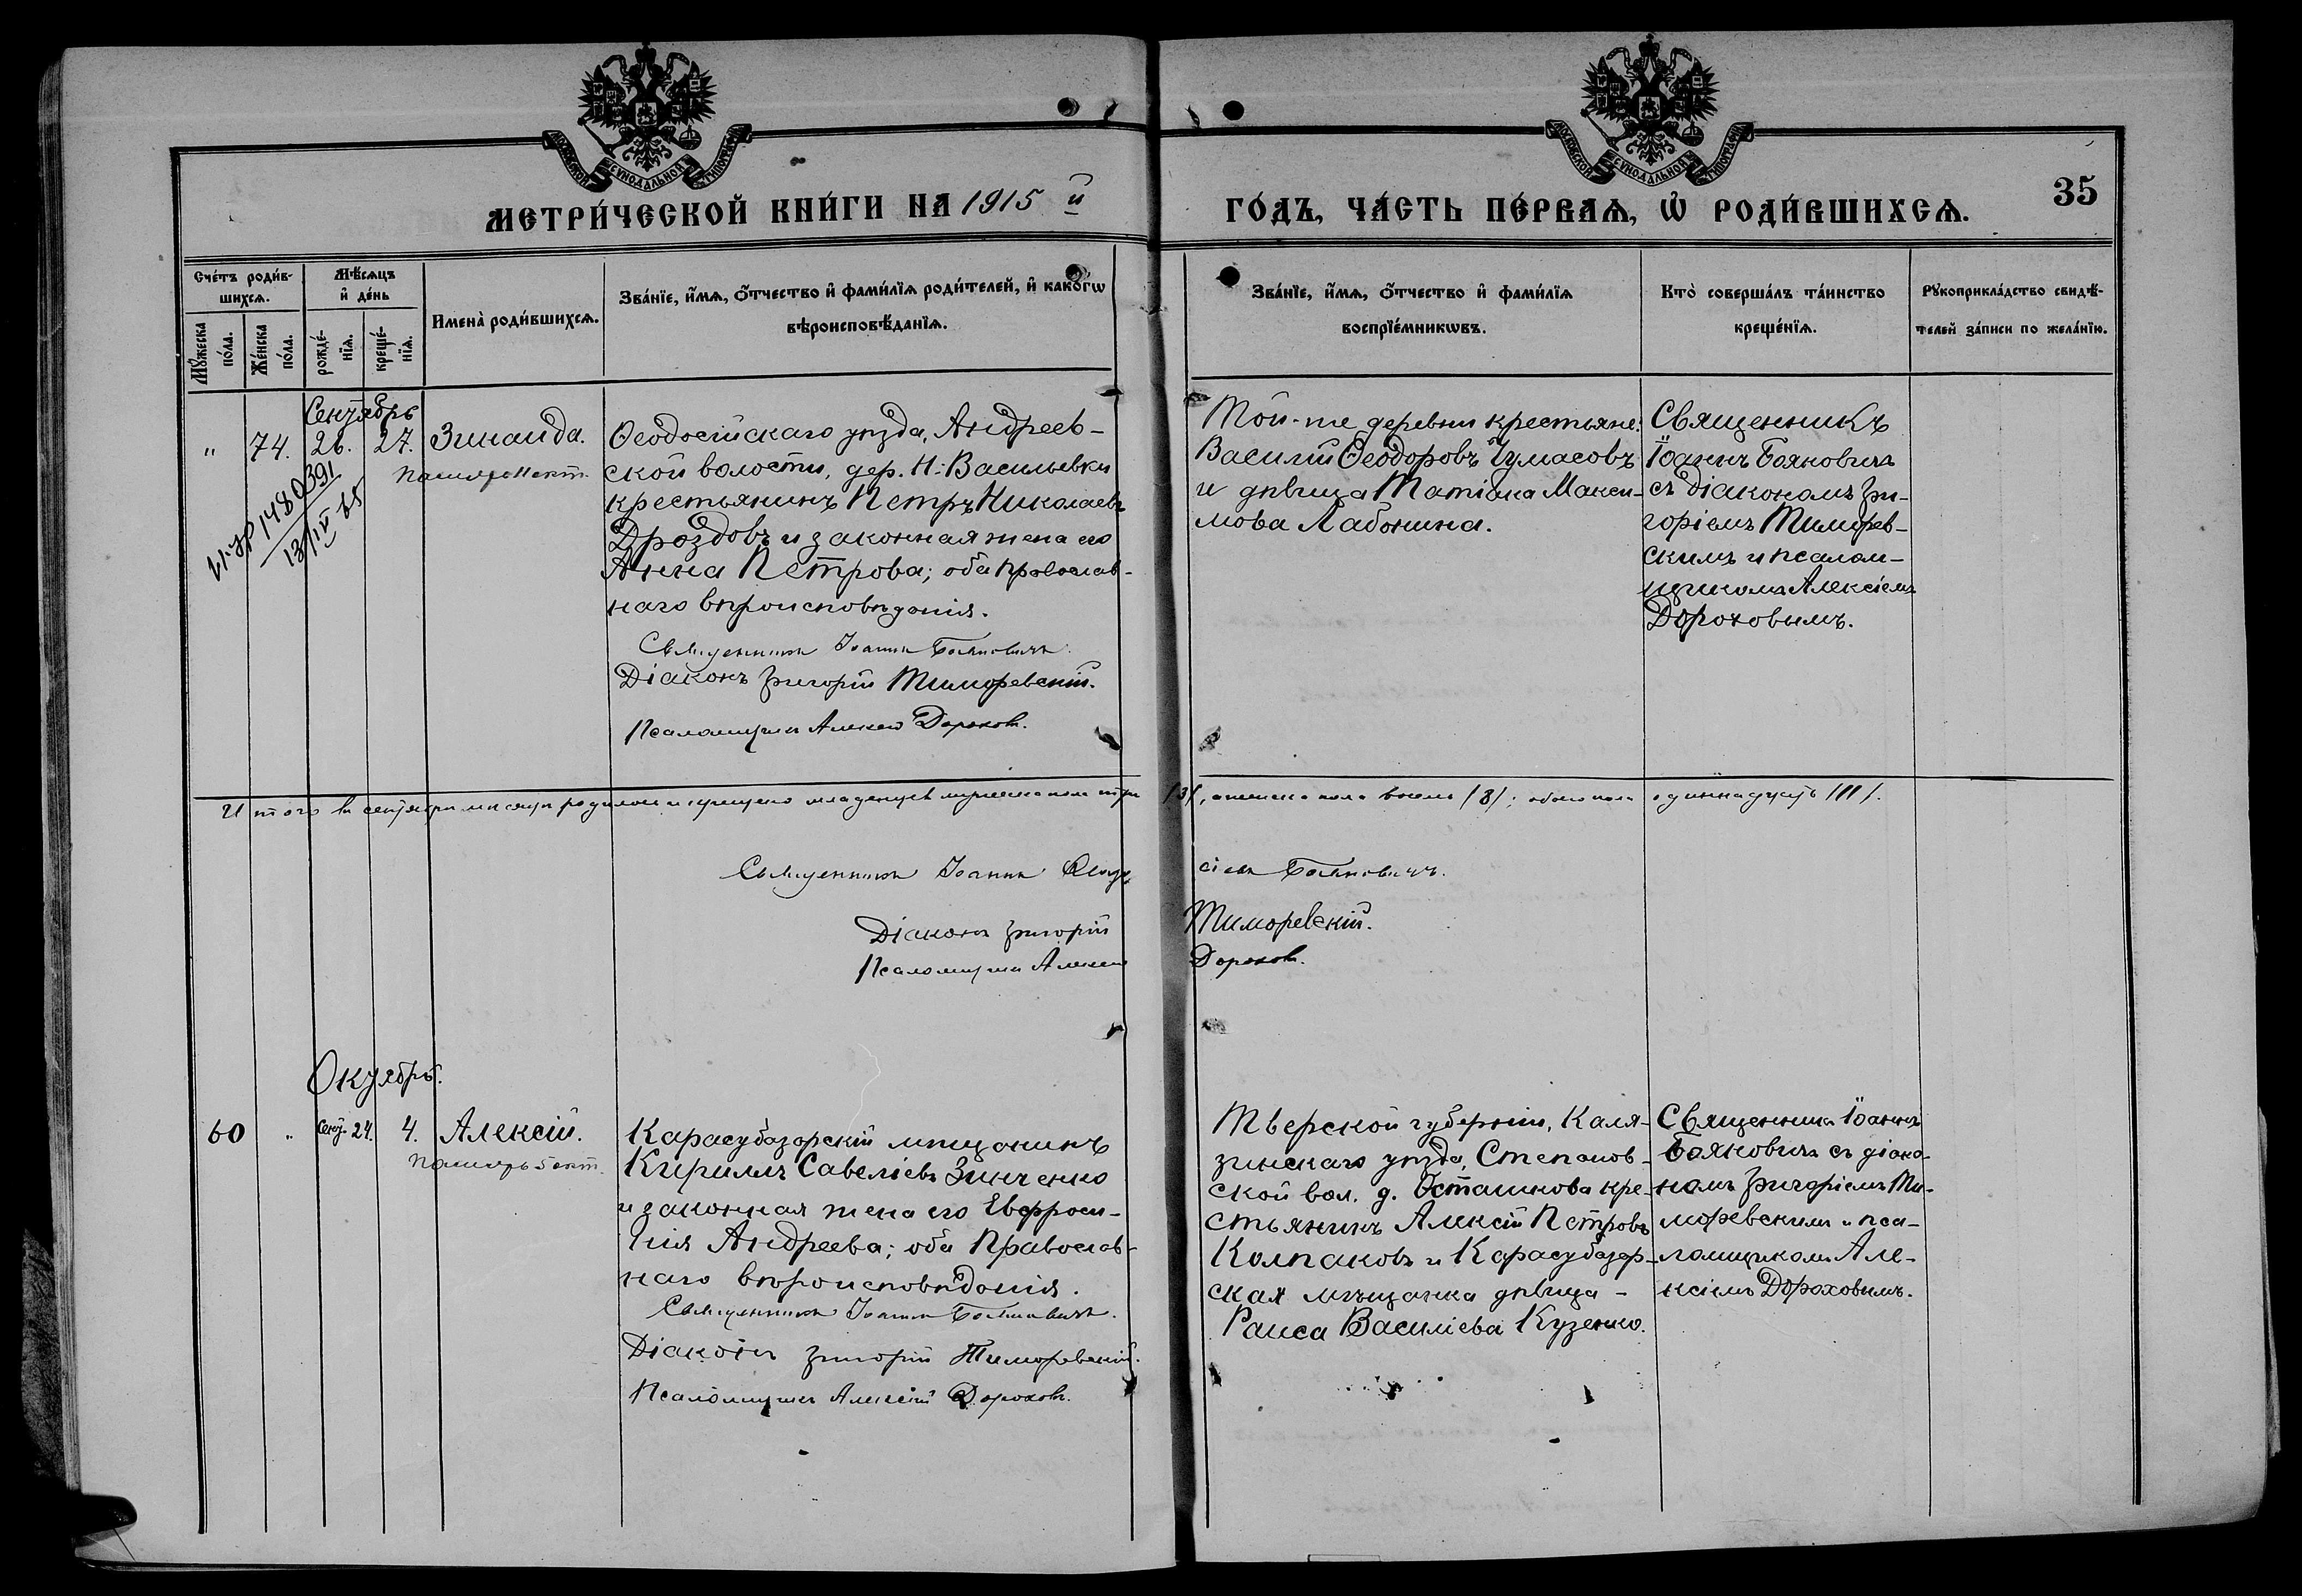 МОСКОВСКОЙ СѴНОДАЛЬНОЙ ТИПОГРАФІИ
МОСКОВСКОЙ СѴНОДАЛЬНОЙ ТИПОГРАФІИ
МЕТРИ́ЧЕСКОЙ КНИ́ГИ НА 1915 й
ГО́ДЪ, ЧА́СТЬ ПЕ́РВАѦ, Ѽ РОДИ́ВШИХСѦ.
35
Сче́тъ роди́в-
шихсѧ.
Мꙋ́жеска
по́ла.
Же́нска
по́ла.
Мѣ́сѧцъ
и҆ де́нь
рожде́-
нїѧ.
креще́-
нїѧ.
Имена̀ роди́вшихсѧ.
Зва́нїе, и҆́мѧ, ѻ҆́тчество и҆ фами́лїѧ роди́телей, и҆ како́гѡ
вѣроисповѣ́данїѧ.
Зва́нїе, и҆́мѧ, ѻ҆́тчество и҆ фами́лїѧ
воспрїе́мникѡвъ.
Кто̀ соверша́лъ та́инство
креще́нїѧ.
Рꙋкоприкла́дство свидѣ́-
телей за́писи по жела́нїю.
Сентябрь
" 74. 26. 27. Зинаида.
1480391
13/IV 65
Ѳеодосійскаго уѣзда, Андреев-
ской волости, дер. Н.-Васильевки
крестьянинъ Петръ Николаевъ
Дроздовъ и законная жена его
Анна Петрова; оба православ-
наго вѣроисповѣданія.
Священникъ Іоаннъ Бояновичъ.
Діаконъ Григорій Тиморевскій.
Псаломщикъ Алексѣй Дороховъ.
Той-же деревни крестьяне:
Василій Ѳеодоровъ Чумасовъ
и дѣвица Татіана Макси-
мова Лабонина.
Священникъ
Іоаннъ Бояновичъ
съ діакономъ Гри-
горіемъ Тиморев-
скимъ и псалом-
щикомъ Алексіемъ
Дороховымъ.
Итого въ сентябрѣ мѣсяцѣ родилось и крещено младенцевъ мужеска пола три /3/, женска пола восемь /8/; обоего пола одиннадцать /11/.
Священникъ Іоаннъ Бояновичъ.
Діаконъ Григорій Тиморевскій.
Псаломщикъ Алексѣй Дороховъ.
Октябрь.
60 " Сент. 24. 4. Алексій.
Карасубазарскій мѣщанинъ
Кириллъ Савеліевъ Зинченко
и законная жена его Евфроси-
нія Андреева; оба Православ-
наго вѣроисповѣданія.
Священникъ Іоаннъ Бояновичъ.
Діаконъ Григорій Тиморевскій.
Псаломщикъ Алексій Дороховъ.
Тверской губерніи, Каля-
зинскаго уѣзда, Степанов-
ской вол. д. Осташкова кре-
стьянинъ Алексій Петровъ
Колпаковъ и Карасубазар-
ская мѣщанка дѣвица -
Раиса Василіева Кузенко.
Священникъ Іоаннъ
Бояновичъ съ діако-
номъ Григоріемъ Ти-
моревскимъ и пса-
ломщикомъ Але-
ксіемъ Дороховымъ.